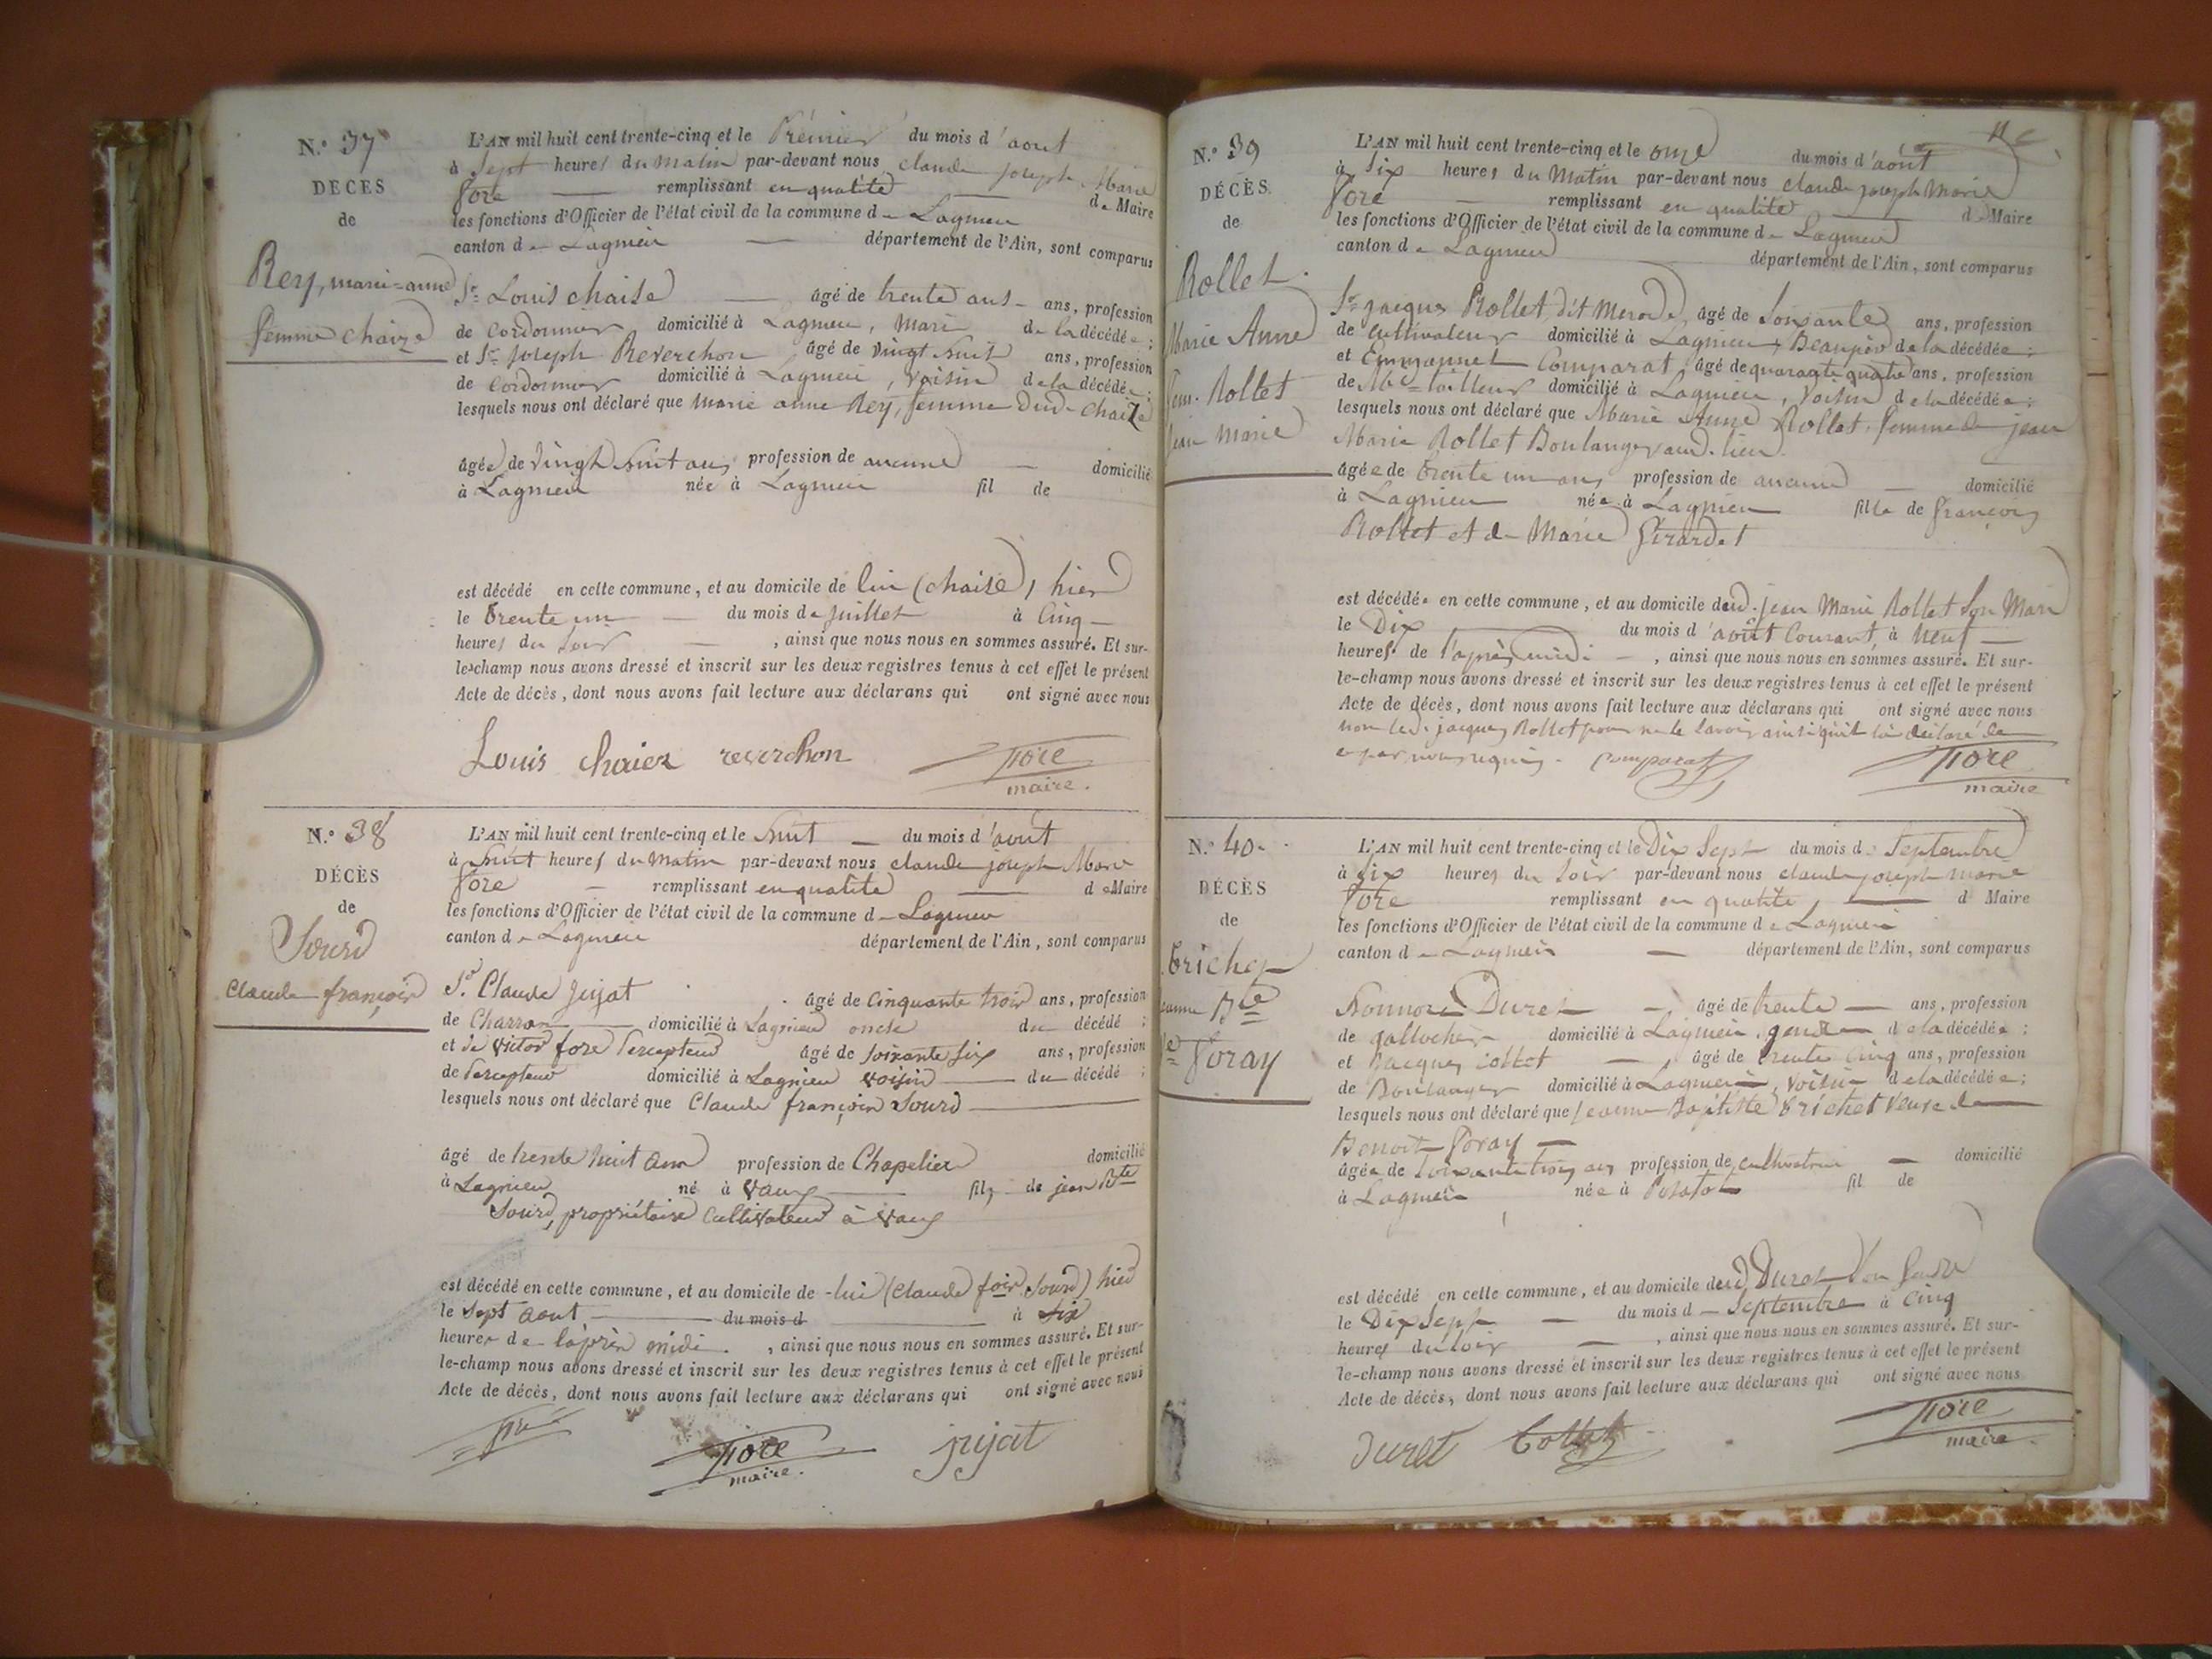 N.º 37
DÉCES
de
Rey, marie-anne
femme chaize
L'AN mil huit cent trente-cinq et le Prémier du mois d'aout
à Sept heures du matin par-devant nous claude joseph Marie
fore remplissant en qualité de Maire
les fonctions d'Officier de l'état civil de la commune de Lagnieu
canton de Lagnieu département de l'Ain, sont comparus
Sr Louis chaise âgé de trente ans ans, profession
de Cordonnier domicilié à Lagnieu, Mari de la décédée;
et Sr joseph Reverchon âgé de vingt huit ans, profession
de Cordonnier domicilié à Lagnieu, voisin de la décédée;
lesquels nous ont déclaré que marie anne Rey, femme dud. chaize
âgée de vingt huit ans profession de aucune domicilié
à Lagnieu née à Lagnieu fil de
est décédé en cette commune, et au domicile de lui (chaise), hier
le trente un du mois de juillet à Cinq
heures du soir, ainsi que nous nous en sommes assuré. Et sur-
le-champ nous avons dressé et inscrit sur les deux registres tenus à cet effet le présent
Acte de décès, dont nous avons fait lecture aux déclarans qui ont signé avec nous
Louis chaiez reverchon fore
maire.
N.º 38
DÉCÈS
de
Sourd
Claude françois
L'AN mil huit cent trente-cinq et le huit du mois d'aout
à huit heures du matin par-devant nous claude joseph Marie
fore remplissant en qualité de Maire
les fonctions d'Officier de l'état civil de la commune de Lagnieu
canton de Lagnieu département de l'Ain, sont comparus
Sr. Claude Jujat âgé de Cinquante trois ans, profession
de Charron domicilié à Lagnieu oncle du décédé;
et de victor fore Percepteur âgé de soixante six ans, profession
de Percepteur domicilié à Lagnieu voisin du décédé;
lesquels nous ont déclaré que Claude françois Sourd
âgé de trente huit ans profession de Chapelier domicilié
à Lagnieu né à vaux fils de jean Bte
Sourd, propriétaire Cultivateur à vaux
est décédé en cette commune, et au domicile de lui (Claude fois Sourd) hier
le sept aout du mois d à six
heures de l'après midi, ainsi que nous nous en sommes assuré. Et sur-
le-champ nous avons dressé et inscrit sur les deux registres tenus à cet effet le présent
Acte de décès, dont nous avons fait lecture aux déclarans qui ont signé avec nous
fore jujat
maire.
N.º 39
DÉCÈS.
de
Rollet
Marie Anne
fem. Rollet
jean Marie
L'AN mil huit cent trente-cinq et le onze du mois d'août
à six heures du Matin par-devant nous claude joseph Marie
fore remplissant en qualité d Maire
les fonctions d'Officier de l'état civil de la commune de Lagnieu
canton de Lagnieu département de l'Ain, sont comparus
Sr jacques Rollet, dit âgé de Soixante ans, profession
de cultivateur domicilié à Lagnieu, Beaupère de la décédée;
et Emmanuel Comparat, âgé de quarante quatre ans, profession
de Md tailleur domicilié à Lagnieu, voisin de la décédée;
lesquels nous ont déclaré que Marie Anne Rollet, femme de jean
Marie Rollet Boulanger aud. lieu
âgée de trente un ans profession de aucune domicilié
à Lagnieu née à Lagnieu fille de françois
Rollet et de Marie Girardet
est décédée en cette commune, et au domicile dud. jean Marie Rollet son Mari
le Dix du mois d'août Courant, à neuf
heures de l'après midi, ainsi que nous nous en sommes assuré. Et sur-
le-champ nous avons dressé et inscrit sur les deux registres tenus à cet effet le présent
Acte de décès, dont nous avons fait lecture aux déclarans qui ont signé avec nous
non led. jacques Rollet pour ne le savoir ainsi qu'il l'a déclaré de
ce par nous requis. Comparat fore
maire
N.º 40
DÉCÈS
de
trichet
jeanne Bte
ve foray
L'AN mil huit cent trente-cinq et le Dix Sept du mois de Septembre
à six heures du soir par-devant nous claude joseph marie
fore remplissant en qualité d Maire
les fonctions d'Officier de l'état civil de la commune de Lagnieu
canton de Lagnieu département de l'Ain, sont comparus
Honnoré Duret âgé de trente ans, profession
de gallocher domicilié à Lagnieu, gendre de la décédée;
et jacques Collet, âgé de trente cinq ans, profession
de Boulanger domicilié à Lagnieu, voisin de la décédée;
lesquels nous ont déclaré que jeanne Baptiste trichet veuve de
Benoit foray
âgée de soixante trois ans profession de cultivatrice domicilié
à Lagnieu née à fil de
est décédé en cette commune, et au domicile dud Duret son gendre
le Dix Sept du mois d Septembre à Cinq
heures du soir, ainsi que nous nous en sommes assuré. Et sur-
le-champ nous avons dressé et inscrit sur les deux registres tenus à cet effet le présent
Acte de décès, dont nous avons fait lecture aux déclarans qui ont signé avec nous
duret Collet fore
maire.